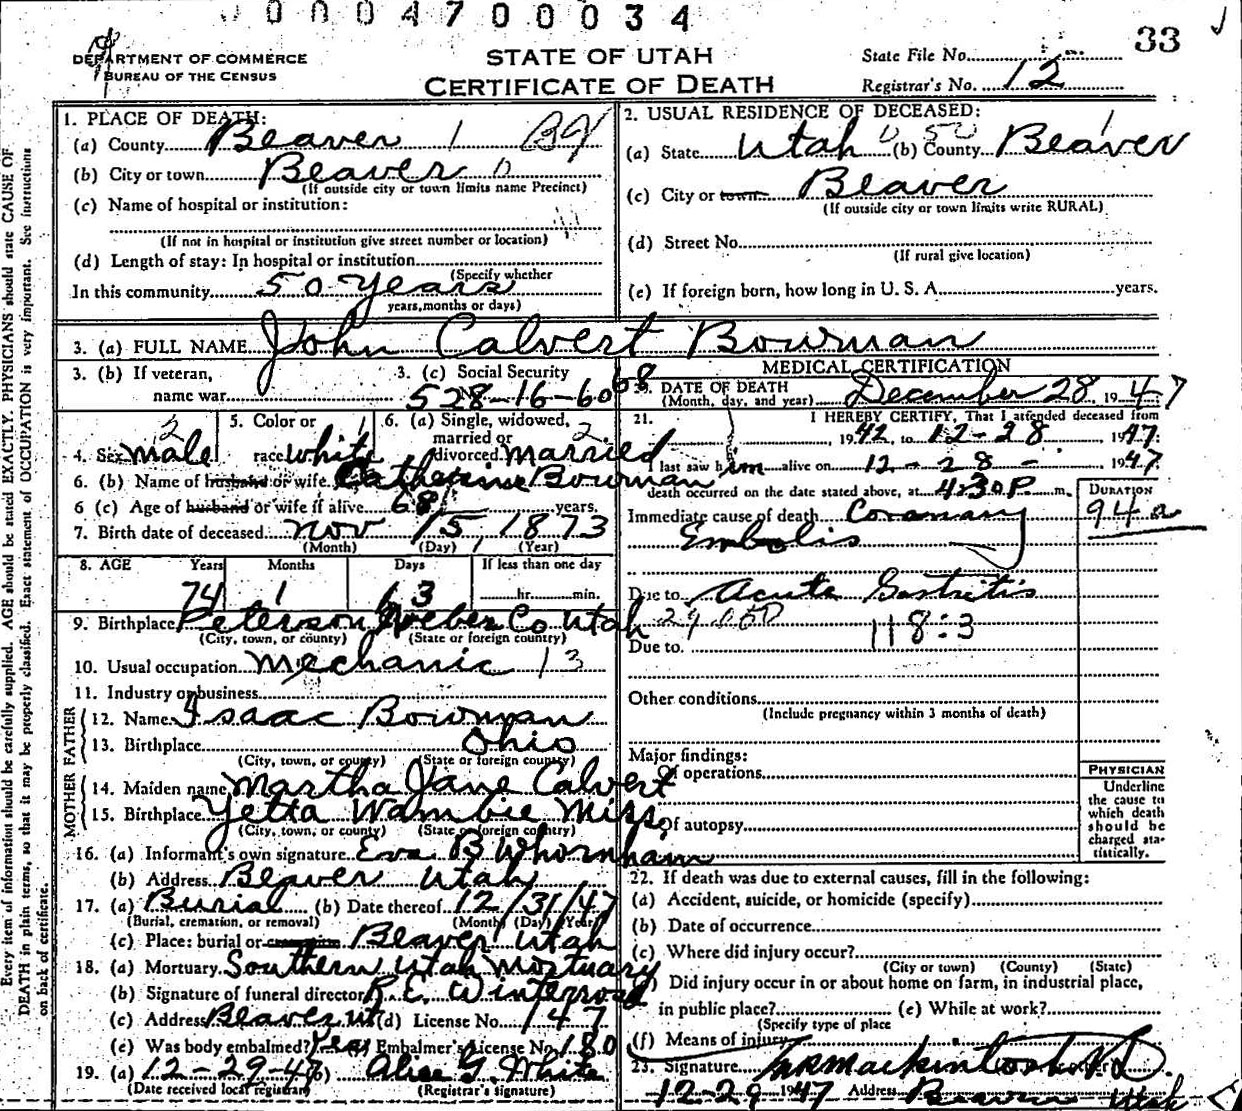 0 0 0 0 4 7 0 0 0 3 4
33
DEPARTMENT OF COMMERCE
BUREAU OF THE CENSUS
STATE OF UTAH
CERTIFICATE OF DEATH
State File No.
Registrar's No. 12
1. PLACE OF DEATH:
(a) County Beaver 1
(b) City or town Beaver 0
(If outside city or town limits name Precinct)
(c) Name of hospital or institution:
(If not in hospital or institution give street number or location)
(d) Length of stay: In hospital or institution
(Specify whether
In this community 50 years
years, months or days)
2. USUAL RESIDENCE OF DECEASED:
(a) State Utah 0 50 (b) County Beaver 1
(c) City or town Beaver
(If outside city or town limits write RURAL)
(d) Street No.
(If rural give location)
(e) If foreign born, how long in U. S. A. years.
3. (a) FULL NAME John Calvert Bowman
3. (b) If veteran,
name war
3. (c) Social Security
528-16-6068
4. Sex male 2
5. Color or
race white 1
6. (a) Single, widowed,
married or
divorced married 2
6. (b) Name of husband or wife Catherine Bowman
6 (c) Age of husband or wife if alive 68 years.
7. Birth date of deceased Nov 15, 1873
(Month) (Day) (Year)
8. AGE Years Months Days If less than one day
74 1 13 hr. min.
9. Birthplace Peterson Weber Co Utah
(City, town, or county) (State or foreign country)
10. Usual occupation Mechanic 13
11. Industry or business
FATHER
12. Name Isaac Bowman
13. Birthplace Ohio
(City, town, or county) (State or foreign country)
MOTHER
14. Maiden name Martha Jane Calvert
15. Birthplace Yetta Wambie Miss.
(City, town, or county) (State or foreign country)
16. (a) Informant's own signature Eva B Whornham
(b) Address Beaver Utah
17. (a) Burial (b) Date thereof 12/31/47
(Burial, cremation, or removal) (Month) (Day) (Year)
(c) Place: burial or cremation Beaver Utah
18. (a) Mortuary Southern Utah Mortuary
(b) Signature of funeral director R. E. Winterrose
(c) Address Beaver Ut (d) License No. 147
(e) Was body embalmed? Yes Embalmer's License No. 180
19. (a) 12-29-47 (b) Alice G. White
(Date received local registrar) (Registrar's signature)
MEDICAL CERTIFICATION
20. DATE OF DEATH December 28, 1947
(Month, day, and year)
21. I HEREBY CERTIFY, That I attended deceased from
1942, to 12-28 1947.
I last saw him alive on 12-28- 1947.
death occurred on the date stated above, at 4:30 P. m.
DURATION
Immediate cause of death Coronary 94a
Embolis
Due to Acute Gastritis
118:3
Due to.
Other conditions
(Include pregnancy within 3 months of death)
Major findings:
Of operations
Of autopsy
PHYSICIAN
Underline
the cause to
which death
should be
charged sta-
tistically.
22. If death was due to external causes, fill in the following:
(a) Accident, suicide, or homicide (specify)
(b) Date of occurrence
(c) Where did injury occur?
(City or town) (County) (State)
Did injury occur in or about home on farm, in industrial place,
in public place? (e) While at work?
(Specify type of place
(f) Means of injury
23. Signature Mackintosh M.D.
12-29 1947 Address Beaver Utah
Every item of information should be carefully supplied. AGE should be stated EXACTLY. PHYSICIANS should state CAUSE OF
DEATH in plain terms, so that it may be properly classified. Exact statement of OCCUPATION is very important. See instructions
on back of certificate.